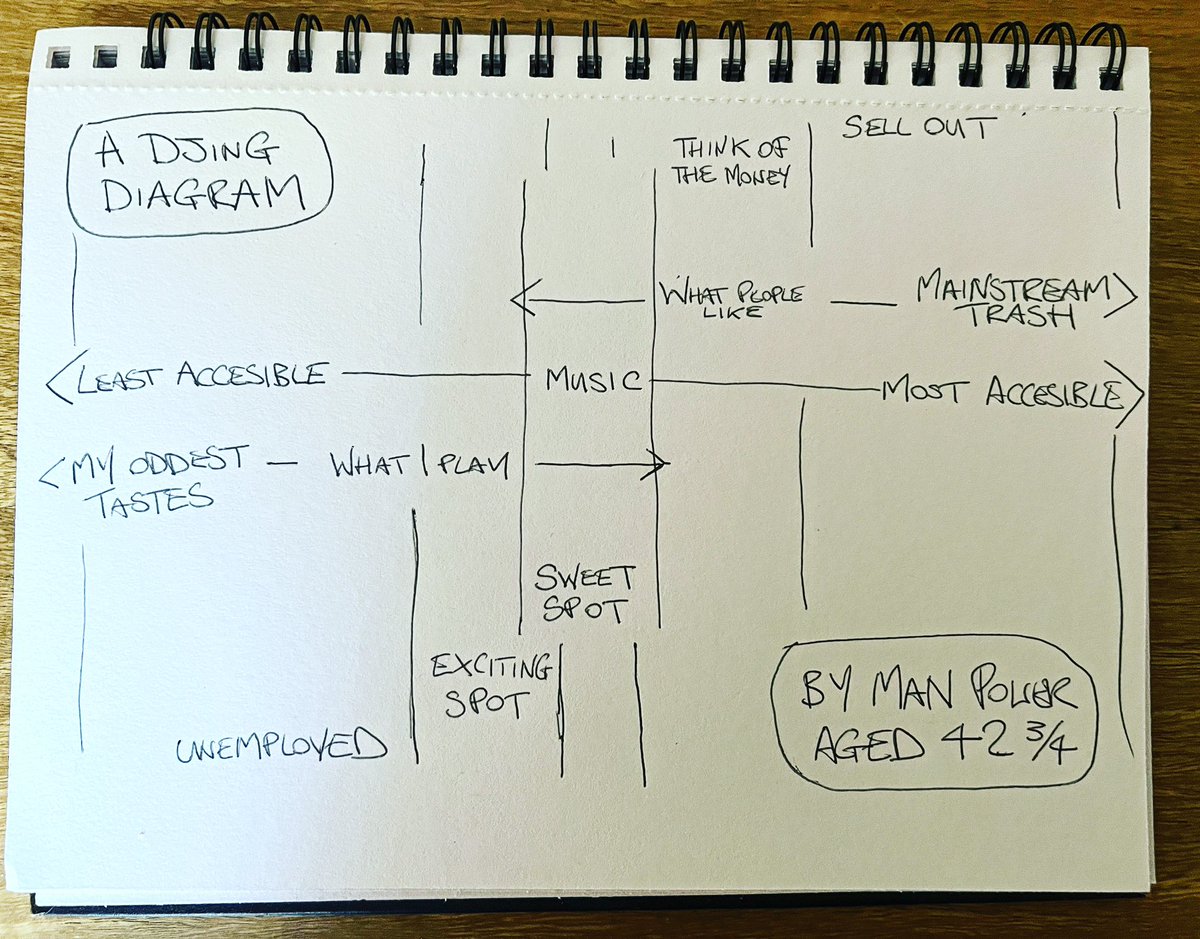 A DJING
DIAGRAM
THINK OF
THE MONEY
SELL OUT
WHAT PEOPLE
LIKE
MAINSTREAM
TRASH
LEAST ACCESIBLE
MUSIC
MOST ACCESIBLE
MY ODDEST
TASTES
WHAT I PLAY
SWEET
SPOT
EXCITING
SPOT
UNEMPLOYED
BY MAN POWER
AGED 42 3/4